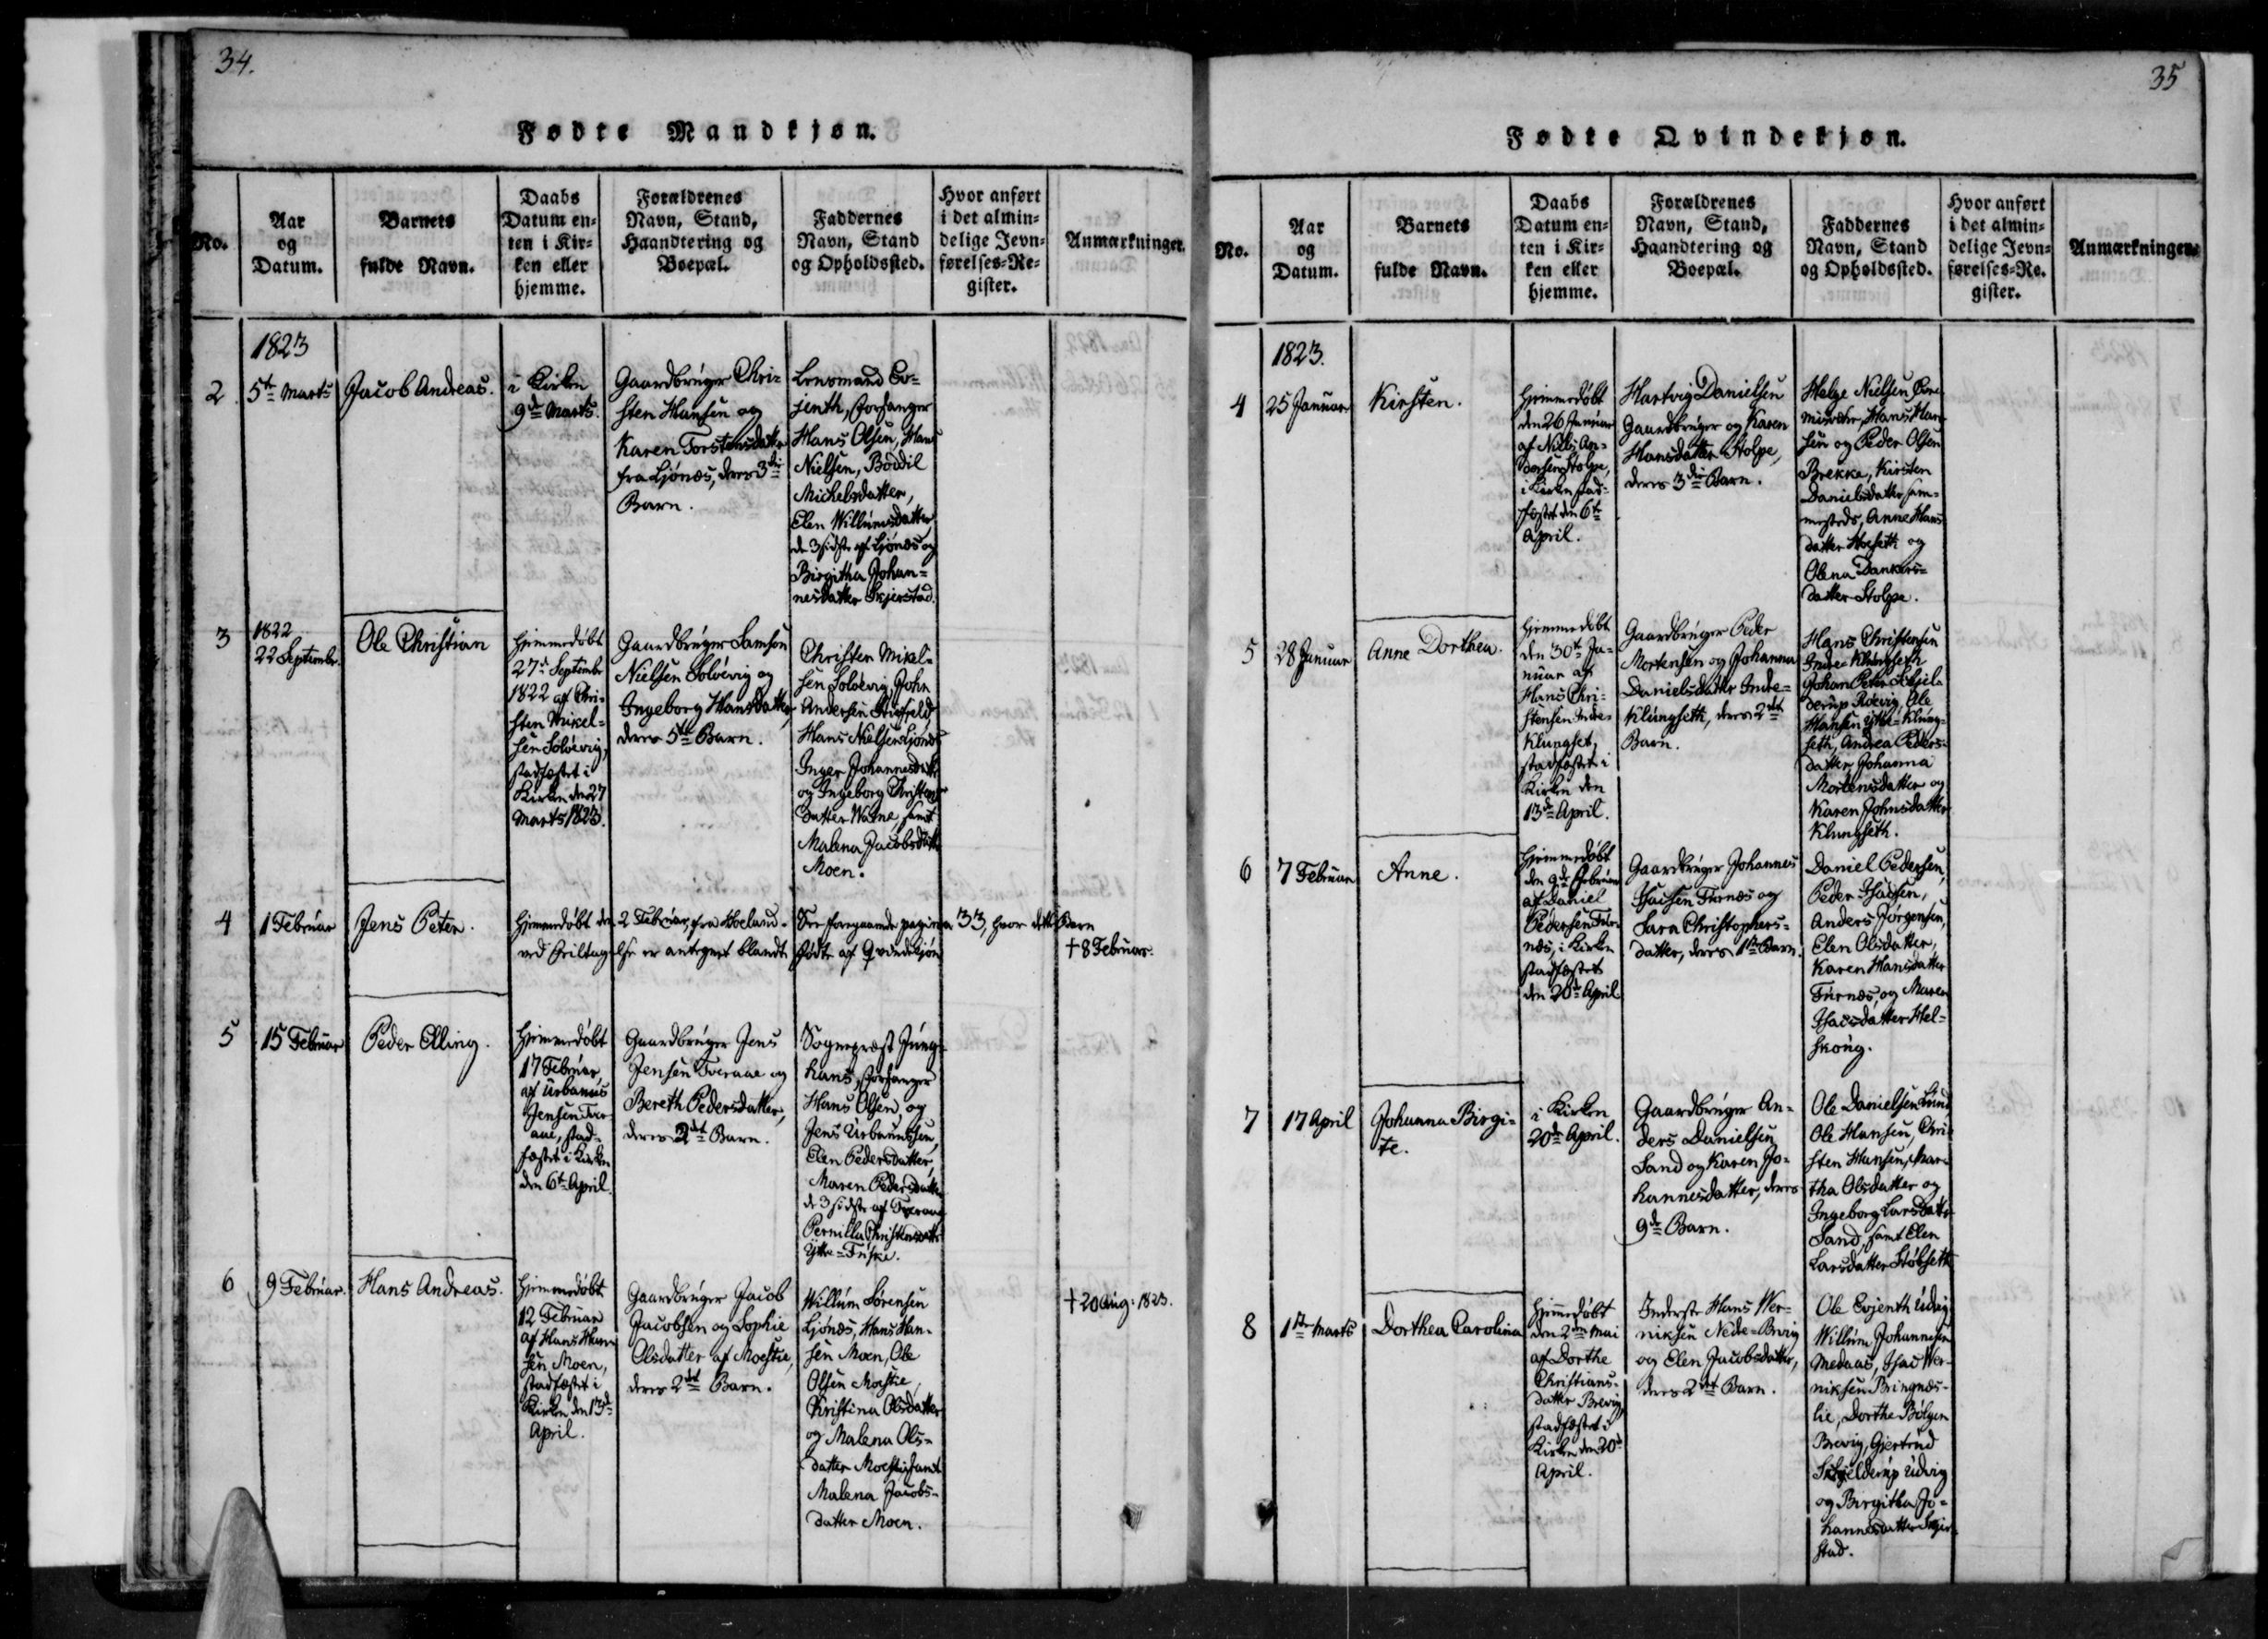 34.
Fødte Mandkjøn.
No.
Aar
og
Datum.
Barnets
fulde Navn.
Daabs
Datum en=
ten i Kir=
ken eller
hjemme.
Forældrenes
Navn, Stand,
Haandtering og
Boepæl.
Faddernes
Navn, Stand
og Opholdssted.
Hvor anført
i det almin=
delige Jevn=
førelses=Re=
gister.
Anmærkninger.
1823
2
5te Marts
Jacob Andreas.
i Kirken
9de Marts.
Gaardbruger Chri=
sten Hansen og
Karen Torstensdatter
fra Ljønes, deres 3die
Barn.
Lensmand Ev=
jenth, Forsanger
Hans Olsen, Hans
Nielsen, Boddil
Michelsdatter,
Elen Willumsdatter
de 3 sidste af Ljønes og
Birgitha Johan=
nesdatter Skjerstad.
3
1822
22 Septembr.
Ole Christian
Hjemmedøbt
27de Septembr
1822 af Chri=
sten Mikel=
sen Soløevig,
stadfæstet i
Kirken den 27
Marts 1823.
Gaardbruger Samson
Nielsen Soløevig og
Ingeborg Hansdatter,
deres 5te Barn.
Christen Mikel=
sen Soløevig, John
Andersen
Hans Nielsen Ljønes
Inger Johannesdatter
og Ingeborg Christens
datter Waene, samt
Malena Jacobsdatter
Moen.
4
1 Februar
Jens Peter.
Hjemmedøbt den 2 Februar, fra Hoeland. See foregaaende pagina 33, hvor dette Barn
ved Feiltagelse er antegnet blandt Fødte af Qvindekjøn
† 8 Februar.
5
15 Februar
Peder Elling.
Hjemmedøbt
17 Februar
af Urbanus
Jensen Tver=
aae, stad=
fæstet i Kirken
den 6te April.
Gaardbruger Jens
Jensen Tveraae og
Bereth Pedersdatter,
deres 2det Barn.
Sognepræst Jung=
hans, Forsanger
Hans Olsen og
Jens Urbanussen,
Elen Pedersdatter,
Maren Pedersdatter
de 3 sidste af Tveraae
Pernilla Christensdatter
Ytre=Fuske.
6
9 Februar.
Hans Andreas.
Hjemmedøbt
12 Februar
af Hans Han=
sen Moen,
stadfæstet i
Kirken den 13de
April.
Gaardbruger Jacob
Jacobsen og Sophie
Olsdatter af Moestie,
deres 2det Barn.
Willum Sørensen
Ljønes, Hans Han=
sen Moen, Ole
Olsen Moestie,
Christina Olsdatter
og Malena Ols=
datter Moestie, samt
Malena Jacobs=
datter Moen.
† 20 Aug: 1823.
35
Fødte Qvindekjøn.
No.
Aar
og
Datum.
Barnets
fulde Navn.
Daabs
Datum en=
ten i Kir=
ken eller
hjemme.
Forældrenes
Navn, Stand,
Haandtering og
Boepæl.
Faddernes
Navn, Stand
og Opholdssted.
Hvor anført
i det almin=
delige Jevn=
førelses=Re.
gister.
Anmærkninger.
1823.
4
25 Januar
Kirsten.
Hjemmedøbt
den 26 Januar
af Niels An=
dersen Stolpe,
i Kirken stad=
fæstet den 6te
April.
Hartvig Danielsen
Gaardbruger og Karen
Hansdatter Stolpe,
deres 3die Barn.
Helge Nielsen
Hans Han=
sen og Peder Olsen
Brekke, Kirsten
Danielsdatter sam=
mesteds, Anne Hans
datter Hoseth og
Olena Dankers=
datter Stolpe.
5
28 Januar
Anne Dorthea.
Hjemmedøbt
den 30te Ja=
nuar af
Hans Chri=
stensen Indre
Klungset,
stadfæstet i
Kirken den
13de April.
Gaardbruger Peder
Mortensen og Johanna
Danielsdatter Indre=
Klungseth, deres 2det
Barn.
Hans Christensen
Indre Klungseth
Johan Peter Schjel=
derup Røevig, Ole
Hansen Ytre=Klung=
seth, Andrea Peders=
datter, Johanna
Mortensdatter og
Karen Johnsdatter
Klungseth.
6
7 Februar
Anne.
Hjemmedøbt
den 9de Februar
af Daniel
Pedersen Fur=
næs, i Kirken
stadfæstet
den 20de April
Gaardbruger Johannes
Isacsen Furnæs og
Sara Christophers=
datter, deres 1ste Barn.
Daniel Pedersen,
Peder Isacsen,
Anders Jørgensen,
Elen Olsdatter,
Karen Hansdatter
Furnæs, og Maren
Isacsdatter Hel=
skoug.
7
17 April
Johanna Birgi=
te.
i Kirken
20de April.
Gaardbruger An=
ders Danielsen
Sand og Karen Jo=
hannesdatter, deres
9de Barn.
Ole Danielsen Lund
Ole Hansen, Chri=
sten Hansen, Mar=
tha Olsdatter og
Ingeborg Larsdatter
Sand, samt Elen
Larsdatter Støbseth
8
1ste Marts
Dorthea Carolina
Hjemmedøbt
den 2den Mai
af Dorthe
Christians=
datter Brevig,
stadfæstet i
Kirken den 20de
April.
Inderste Hans Wer=
niksen Nedre=Brevig
og Elen Jacobsdatter,
deres 2det Barn.
Ole Evjenth Udvig
Willum Johannesen
Medaas, Isac Wer=
niksen Bringnæs=
lie, Dorthe Bølgen
Brevig, Gjertrud
Schjelderup Udvig
og Birgitha Jo=
hannesdatter Skjer
stad.